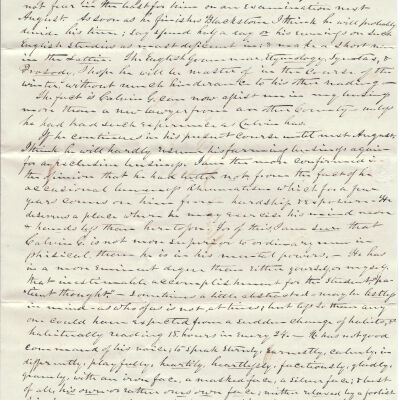 not fear in the least for him on an examination next
August. As soon as he finishes Blackstone, I think he will probably
divide his time; say spend half a day or his evenings on such
English Studies as most deficient in; & make a short
in the Latin. The English Grammar, Etymology, Syntax, &
Prosody, I hope he will be master of in the Course of the
winter, without much hinderance to his other reading —
The fact is Calvin G. can now assist me in my business
more than a new lawyer from another County — unless
he had had such experience as Calvin has.
If he continues in his present course until next August,
I think he will hardly resume his farming business again
for an exclusive business. I am the more confirmed in
the opinion that he had better not, from the fact of his
occasional lameness Rheumatism which for a few
years comes on him from hardship & exposure — He
deserves a place where he may exercise his mind more
& hands less than heretofore. For of this I am sure that
Calvin G. is not more superior to ordinary men in
phisical, than he is in his mental powers. — He has
in a more eminent degree than either yourself or myself,
that inestimable accomplishment for the Student "pa-
tient thought" — sometimes a little abstracted — may be lost up
in mind — as who of us is not, at times; but less so than any
one could have expected from a sudden change of habits, to
habitually reading 18 hours in every 24. — He has not good
command of his voice; to speak sternly, earnestly, calmly, in
differently, playfully, heartily, heartlessly, facetiously, gladly,
grimly, with an iron face, a masked face, a silent face; & best
of all, his own or rather ones own face; neither relaxed by a foolish